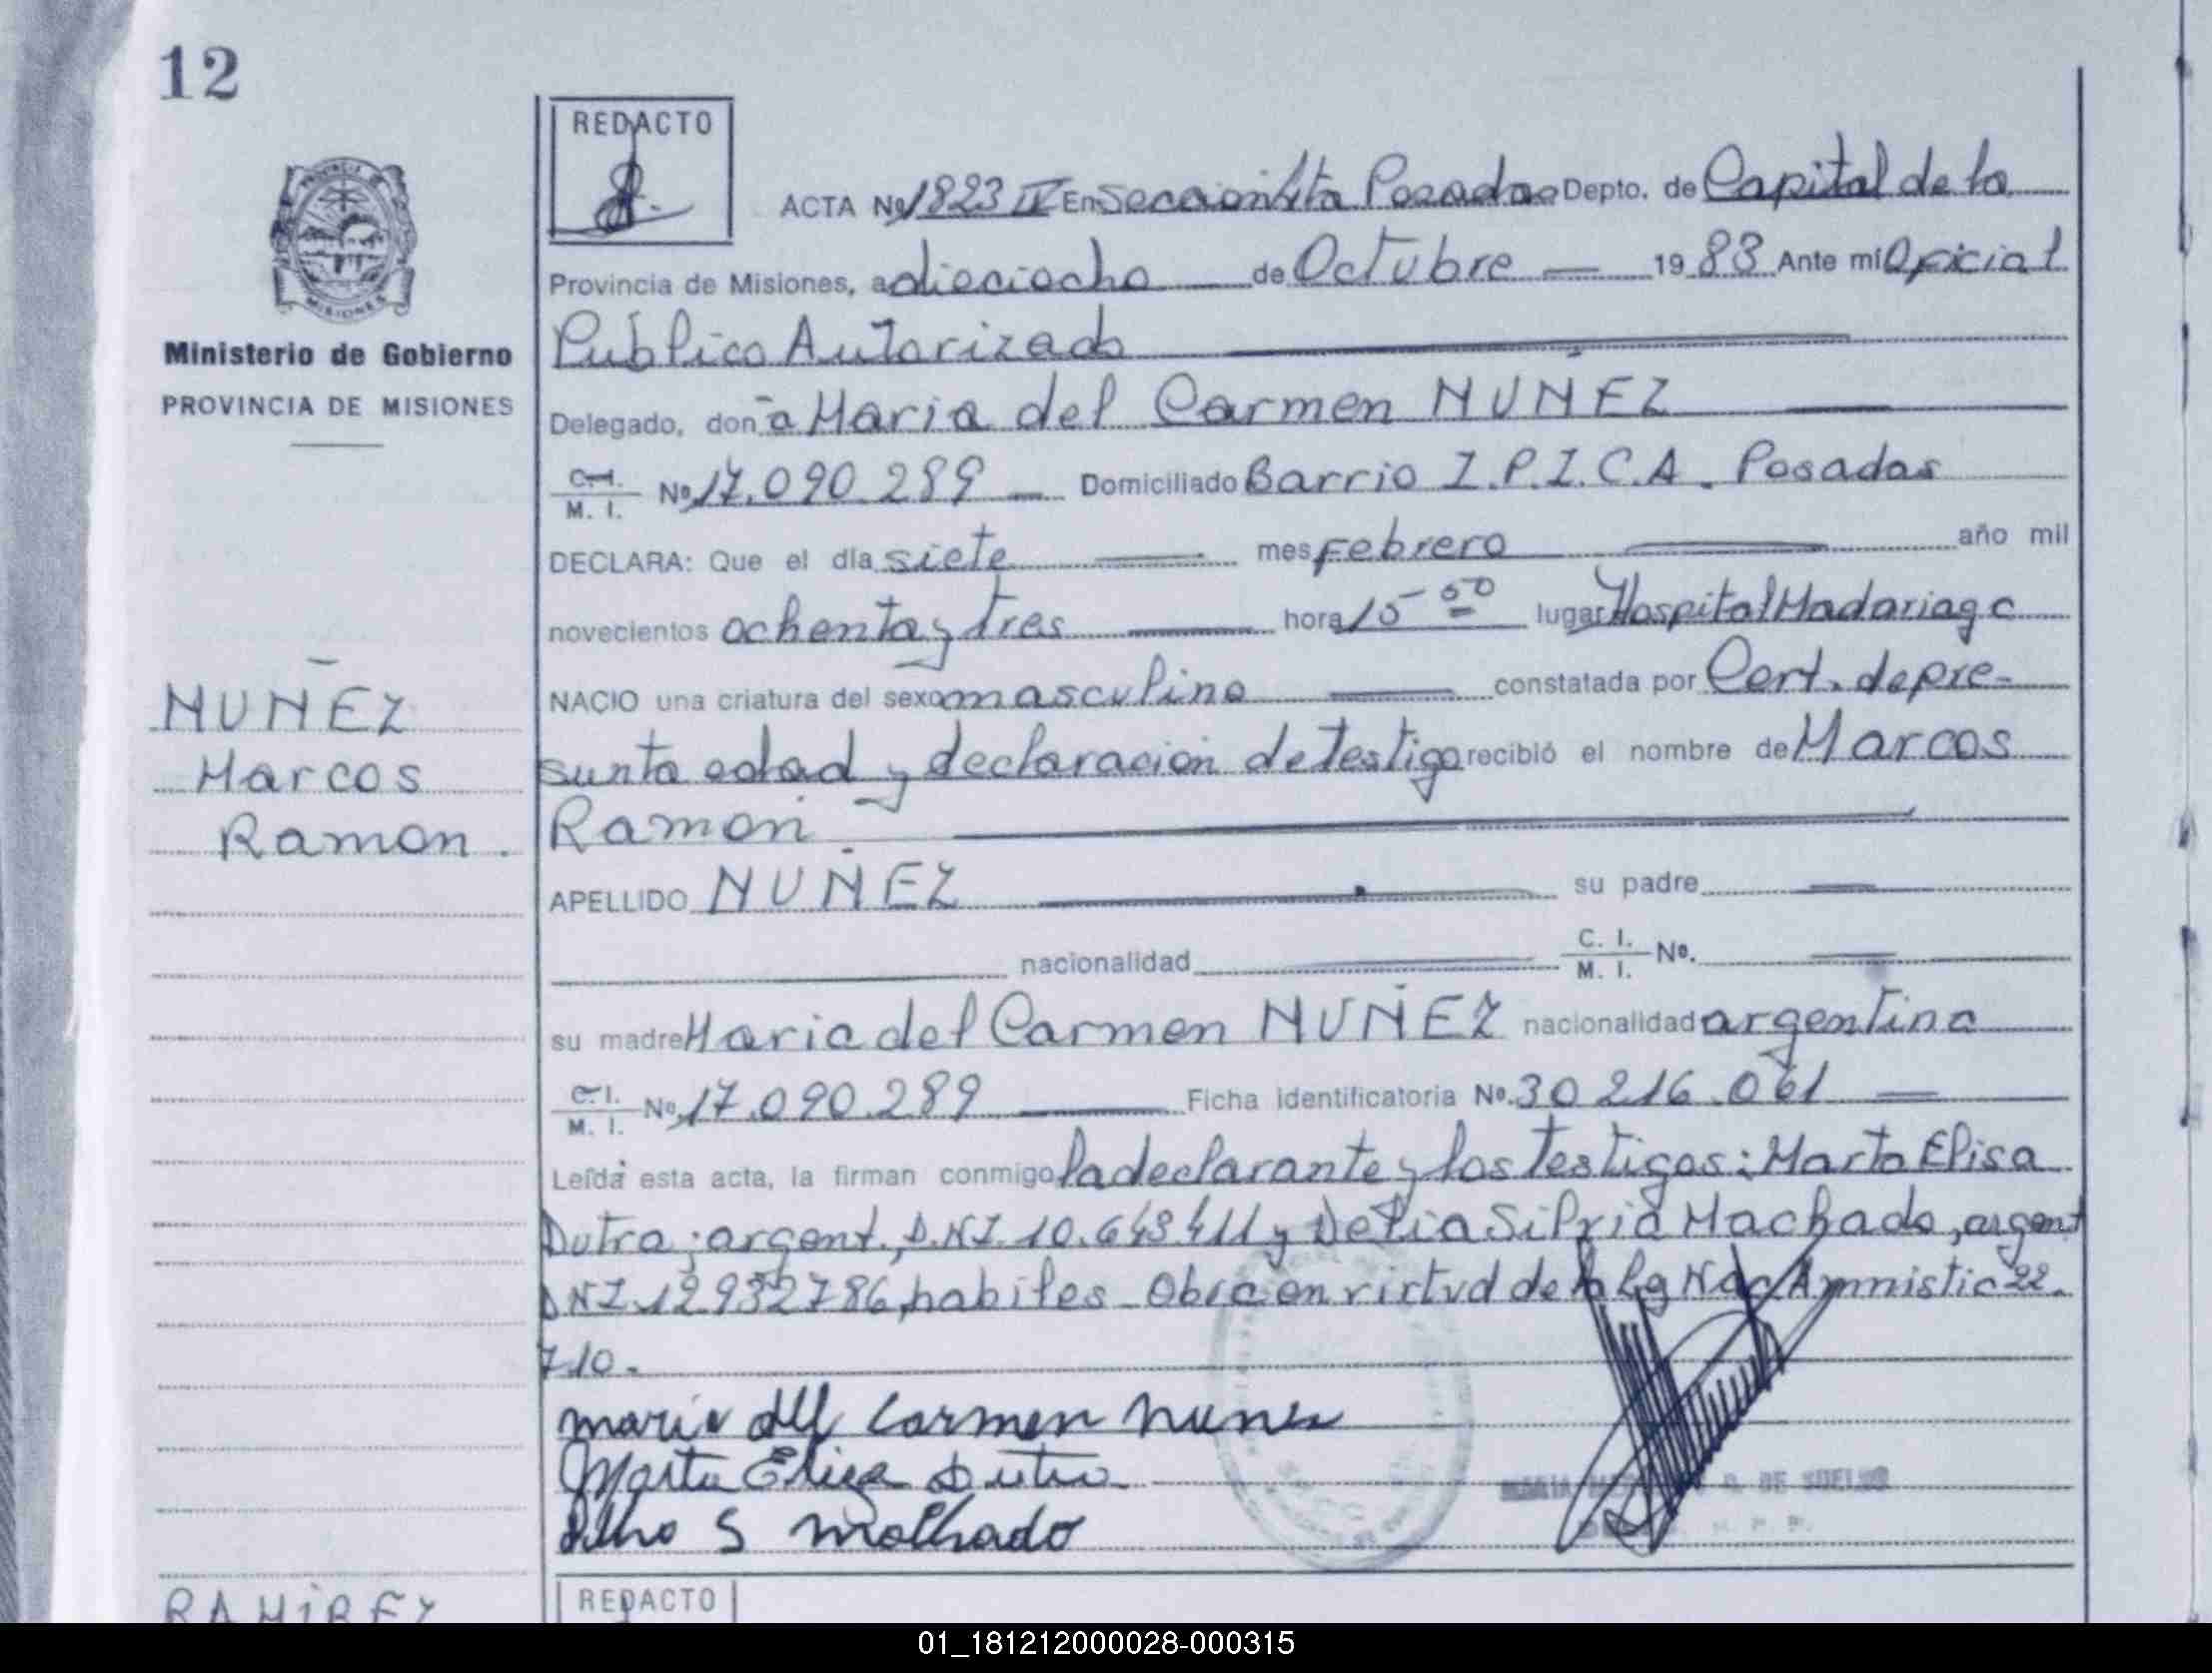 12
REDACTO
PROVINCIA DE
MISIONES
Ministerio de Gobierno
PROVINCIA DE MISIONES
ACTA Nº 1823 IV En Sección 4ta Posadas Depto. de Capital de la
Provincia de Misiones, a dieciocho de Octubre 19 83 Ante mí Oficial
Público Autorizado
Delegado, don a Maria del Carmen NUÑEZ
C.I.
M. I. Nº 17.090.289 Domiciliado Barrio I.P.I.C.A. Posadas
DECLARA: Que el día siete mes Febrero año mil
novecientos ochenta y tres hora 15-50 lugar Hospital Madariaga
NACIO una criatura del sexo masculino constatada por Cert. de pre-
sunta edad y declaración de testigo recibió el nombre de Marcos
Ramon
APELLIDO NUÑEZ su padre
nacionalidad C. I.
M. I. Nº.
su madre Maria del Carmen NUÑEZ nacionalidad argentina
C.I.
M. I. Nº 17.090.289 Ficha identificatoria Nº. 30 216.061
Leída esta acta, la firman conmigo la declarante y los testigos: Marta Elisa
Dutra; argent., D.N.I. 10.643.411 y Delia Silvia Machado, argent
DNI 12932786, habiles Obra en virtud de la Ley Nac Amnistia 22.
710.
NUÑEZ
Marcos
Ramon.
maria del Carmen nunes
Marta Elisa Dutra
S Malhado
DE
RAMIREZ
REDACTO
01_181212000028-000315